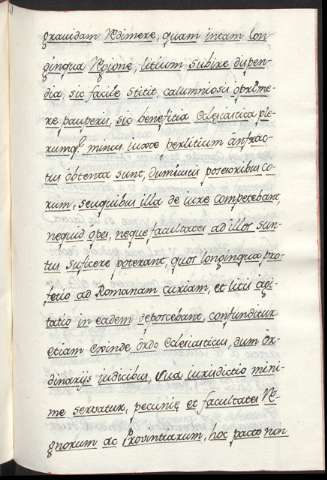 grauidam Redimere, quam in tam lon
ginqua Regione, litium subire dispen
dia, sic facile stitit calumniosis opprime
re pauperes, sic beneficia Eclesiastica ple
rumq minus iuste per litium anfrac
tus obtenta sunt, dumiusius potentioribus co
rum, seu quibus illa de iure competebant
nequid opes, neque facultates ad illos sun
tus sufficere poterant, quos longinqua pro
fectio ad Romanam curiam, et litis agi
tatio in eadem deposcebant, confunditur
etiam exinde ordo eclesiasticus, dum or
dinarijs judicibus, sua iurisdictio mini
me seruatur, pecuniæ et facultates Re
gnorum ac Prouintiarum, hoc pacto non